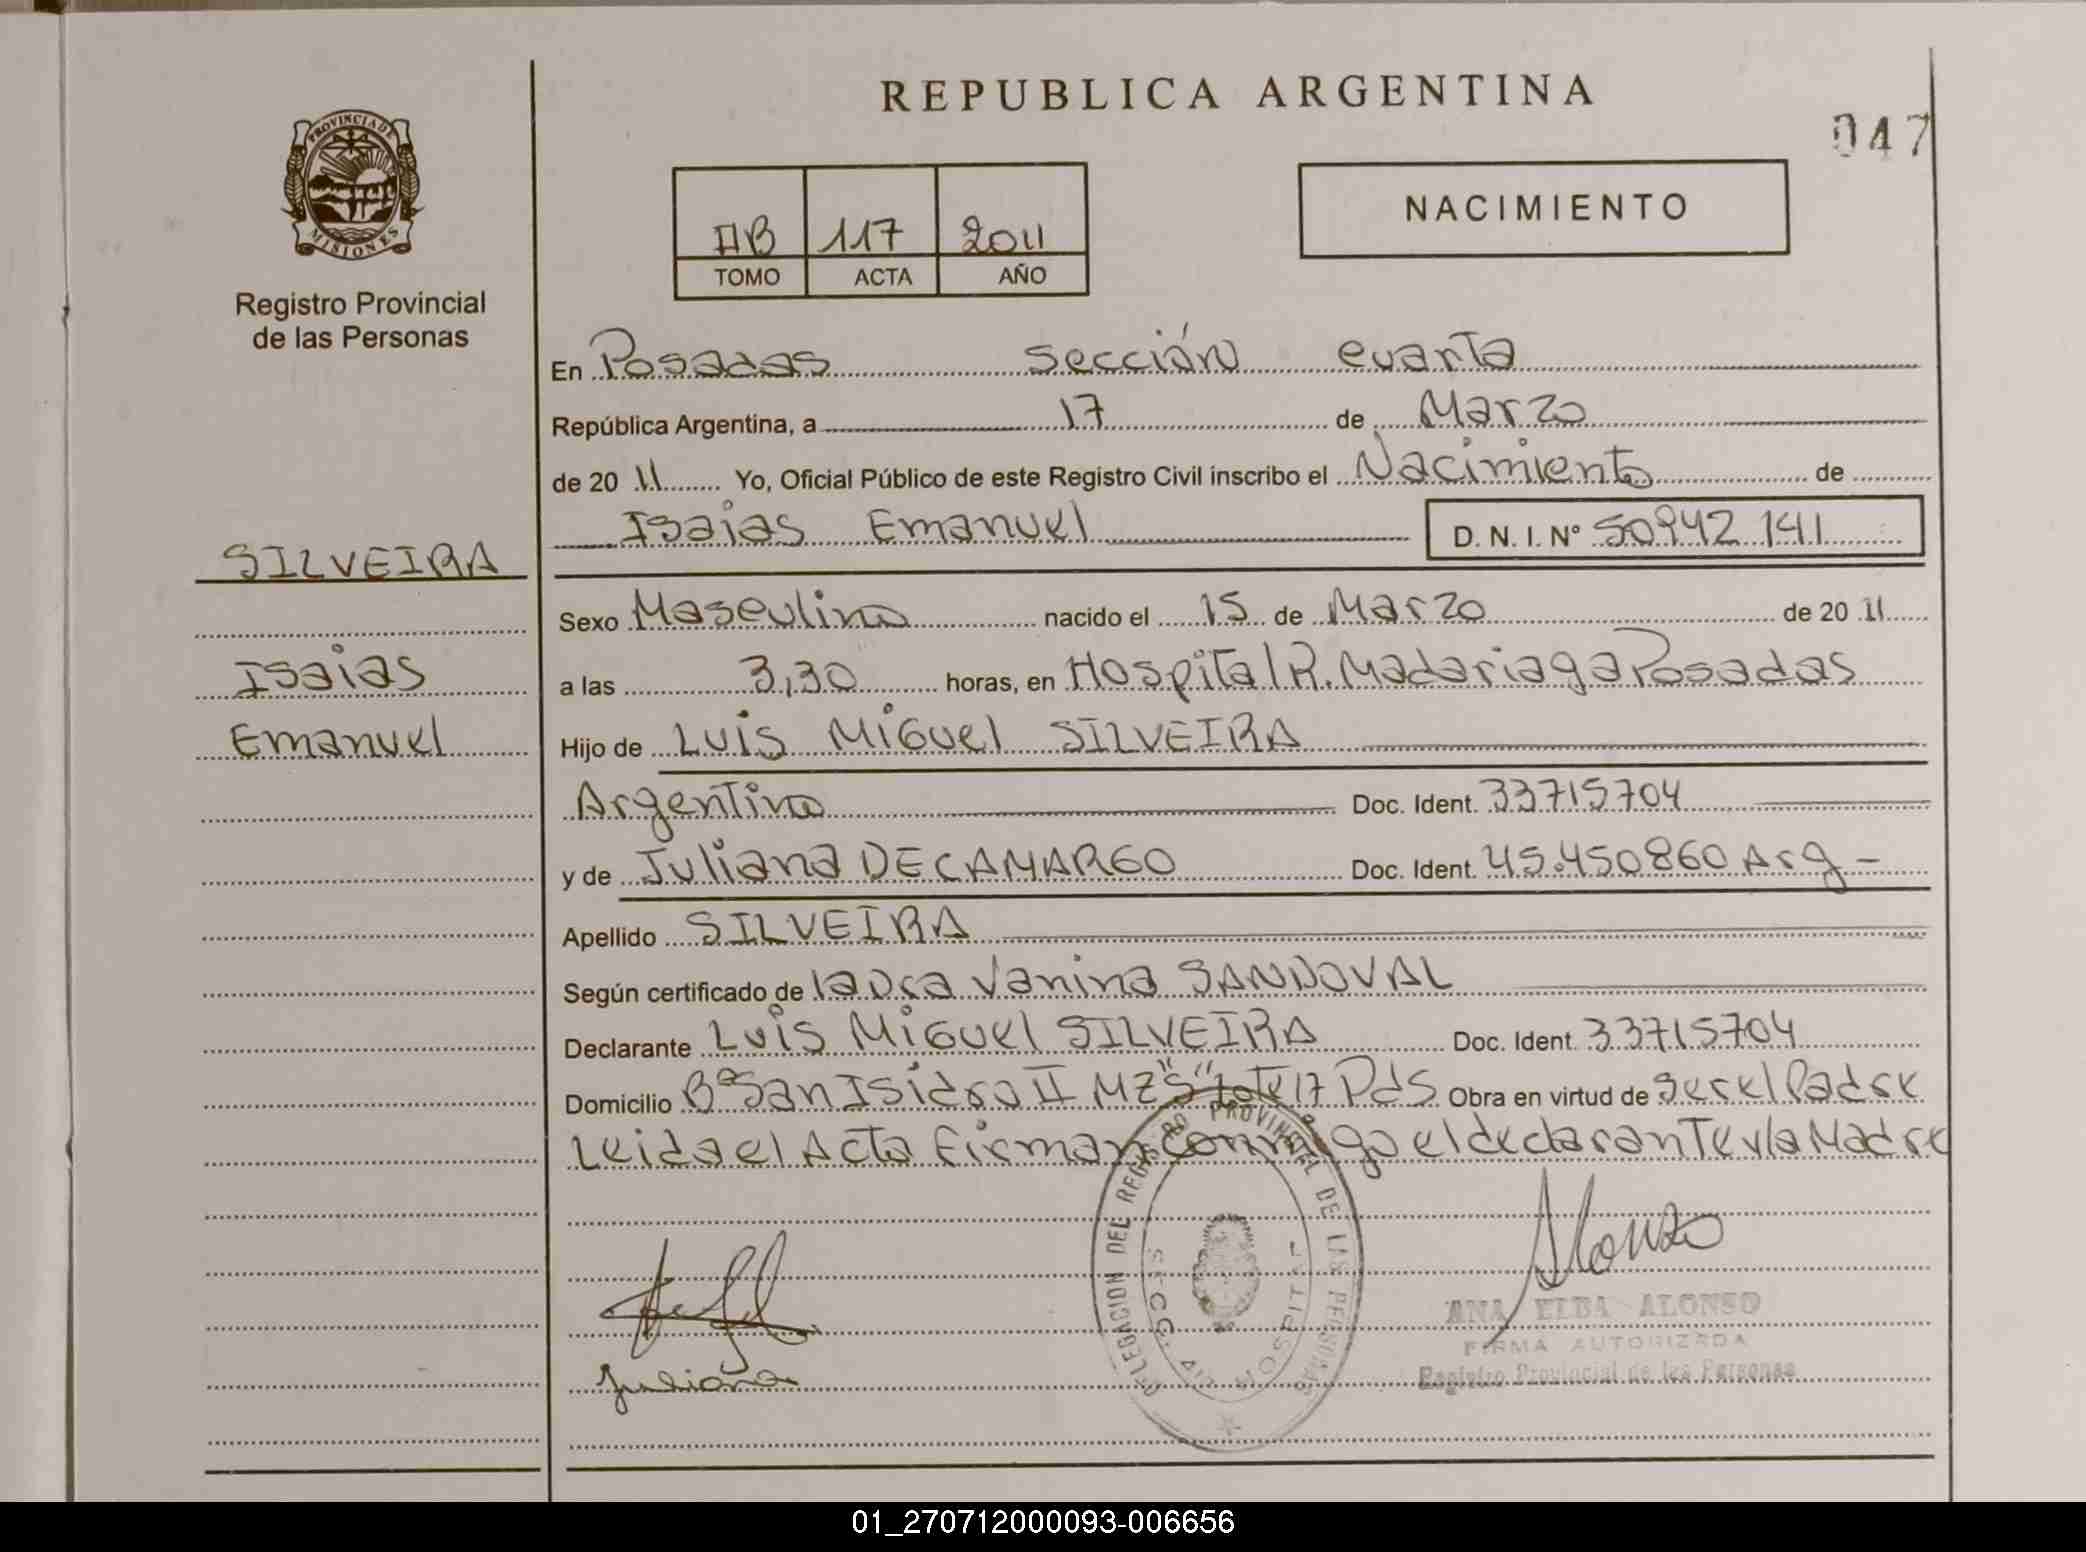 REPUBLICA ARGENTINA
047
PROVINCIA DE
MISIONES
Registro Provincial
de las Personas
IIB 117 2011
TOMO ACTA AÑO
NACIMIENTO
En Posadas sección cuarta
República Argentina, a 17 de Marzo
de 2011 Yo, Oficial Público de este Registro Civil inscribo el Nacimiento de
Isaias Emanuel D. N. I. Nº 50942 141
SILVEIRA
Isaias
Emanuel
Sexo Masculino nacido el 15 de Marzo de 2011
a las 3,30 horas, en Hospital R. Madariaga Posadas
Hijo de Luis Miguel SILVEIRA
Argentino Doc. Ident. 33715704
y de Juliana DE CAMARGO Doc. Ident. 45.450860 Arg -
Apellido SILVEIRA
Según certificado de la Dra Vanina SANDOVAL
Declarante Luis Miguel SILVEIRA Doc. Ident. 33715704
Domicilio Bº San Isidro II MZ "S" lote 17 Pds Obra en virtud de ser el Padre
Leida el Acta firman conmigo el declarante y la Madre
DELEGACION DEL REGISTRO PROVINCIAL DE LAS PERSONAS
SECC. 4ta HOSPITAL
Alonzo
ANA ELBA ALONSO
FIRMA AUTORIZADA
Registro Provincial de las Personas
Juliana
01_270712000093-006656